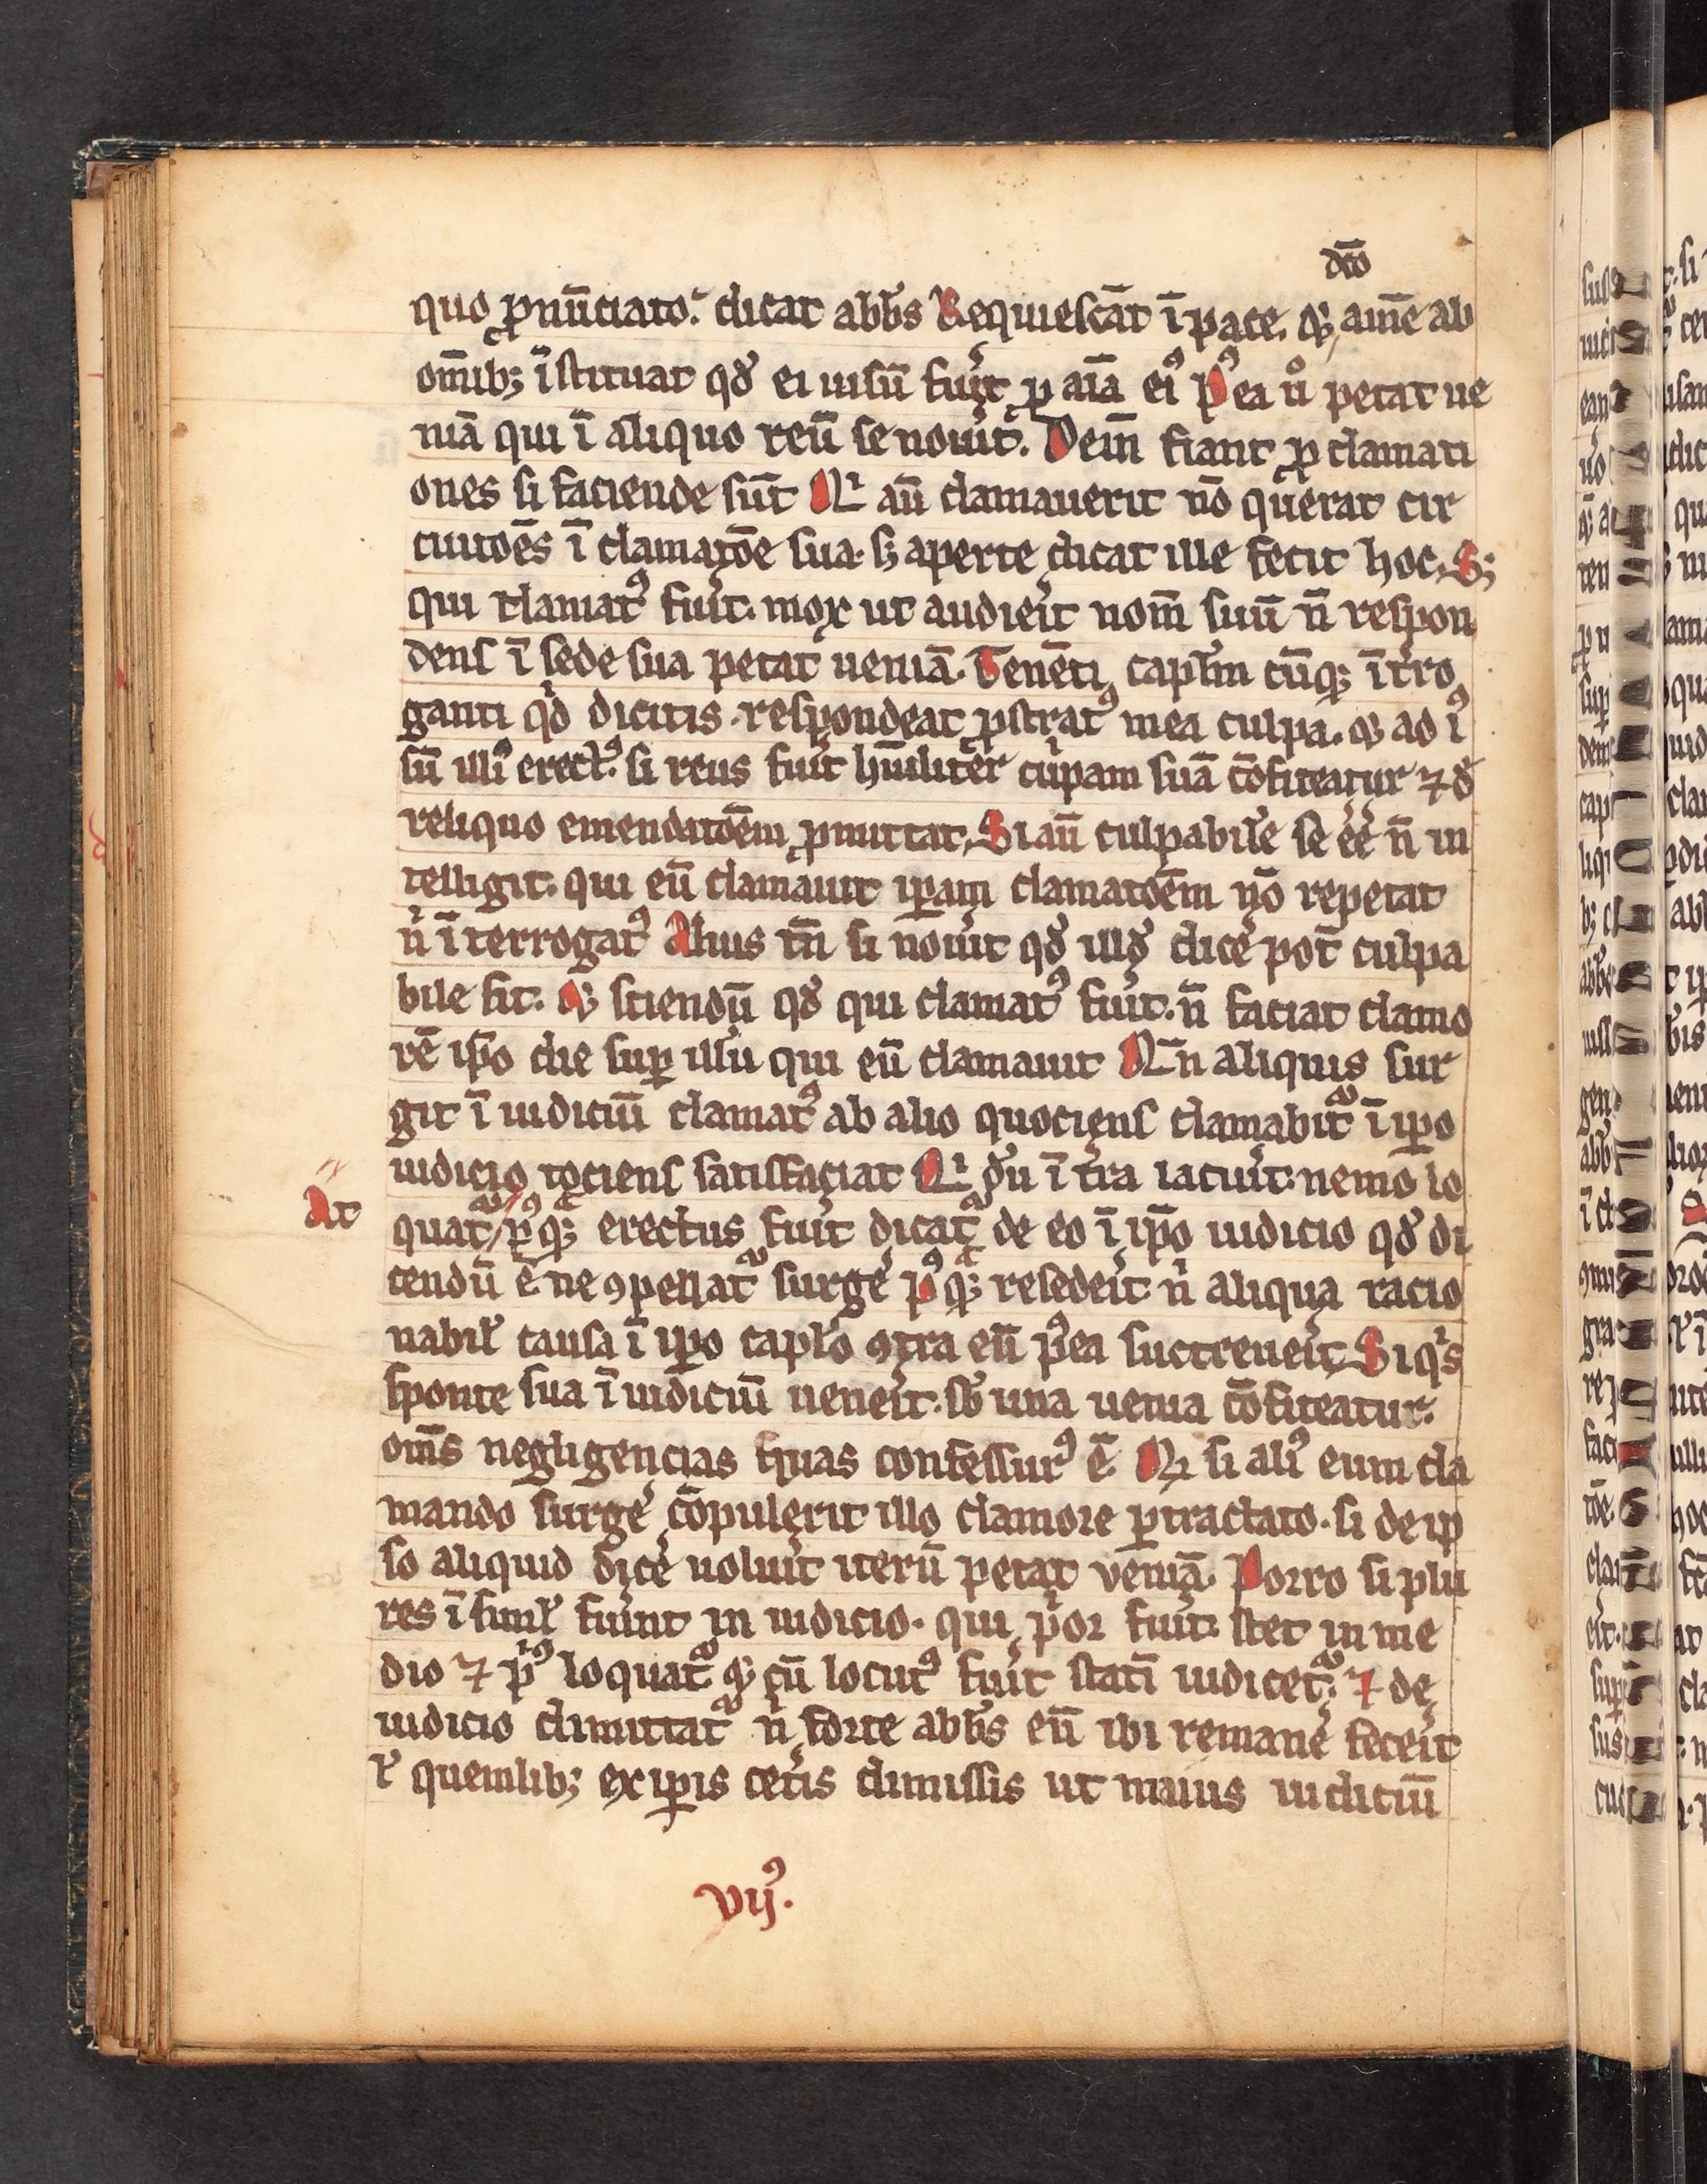 dc̄o
quo ꝓnūciato. dicat abb̄s Requiescāt ī pace. Qꝫ am̄e ab
om̄ibꝫ īstituat qď ei uisū fu̾it ꝑ aīa ei⁹ P⁹ea ů petat ue
niā qui ī aliquo reū se nou̾it. Dein̄ fiant ꝓ clamati
ones si faciende sūt Qͥ aū clamauerit nō querat cir
cuitōēs ī clamatōe sua. sꝫ aperte dicat ille fecit hoc. Sꝫ
qui clamat⁹ fu̾it. mox ut audie̾it nom̄ suū n̄ respon
dens ī sede sua petat ueniā. Tenēti capl̄m cūqꝫ ītro
ganti qͥd dicitis. respondeat ꝓstrat⁹ mea culpa. qꝫ ad i⁹
sū illi⁹ erect⁹. si reus fu̾it hūilit̾er cͥpam suā cōfiteatur ⁊ đ
reliquo emendatōēm ꝓmittat. Si aū culpabil̾e se ee̾ n̄ in
telligit. qui eū clamauit ip̄am clamatoēm nō repetat
nͥ īterrogat⁹ Alius tn̄ si nou̾it qď illď dice̾ pot̄ culpa
bile sit. Qꝫ sciendū qď qui clamat⁹ fu̾it. n̄ faciat clamo
rē ip̄o die suꝑ illū qui eū clamauit Qn̄ aliquis sur
git ī iudiciū clamat⁹ ab alio quociens clamabit᷑ ī ip̄o
iudicio tociens satisfaciat Qͥ du̾ ī t̾ra iacu̾it. nemo lo
At
quat᷑/ p⁹qꝫ erectus fu̾it dicat᷑ de eo ī ip̄o iudicio qď di
cendū ē ne ꝯpellat᷑ surge̾ p⁹qꝫ resede̾it nͥ aliqua racio
nabil̾ causa ī ip̄o capl̾o ꝯtra eū p⁹ea succreue̾it Si qͥs
sponte sua ī iudiciū uene̾it. sb̾ una uenia cōfiteatur.
om̄s negligencias quas confessur⁹ ē. Qꝫ si ali⁹ eum cla
mando surge̾ cōpulerit illo clamore ꝑtractato. si de ip
so aliquid dice̾ uolu̾it iterū petat veniā. Porro si plu
res ī simul̾ fu̾int in iudicio. qui pͥor fu̾it. stet in me
dio ⁊ pͥ⁹ loquat᷑ qꝫ cū locut⁹ fu̾it statī iudicet᷑. ⁊ de
iudicio dimittat᷑ nͥ forte abb̄s eū ibi remane̾ fece̾it
l̾ quemlibꝫ ex ip̄is cet̾is dimissis ut maius iudiciū
vij⁹.